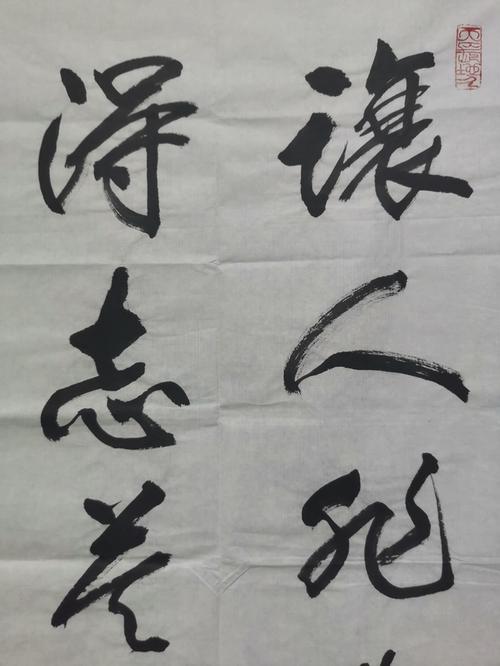 讓人非
得志莫